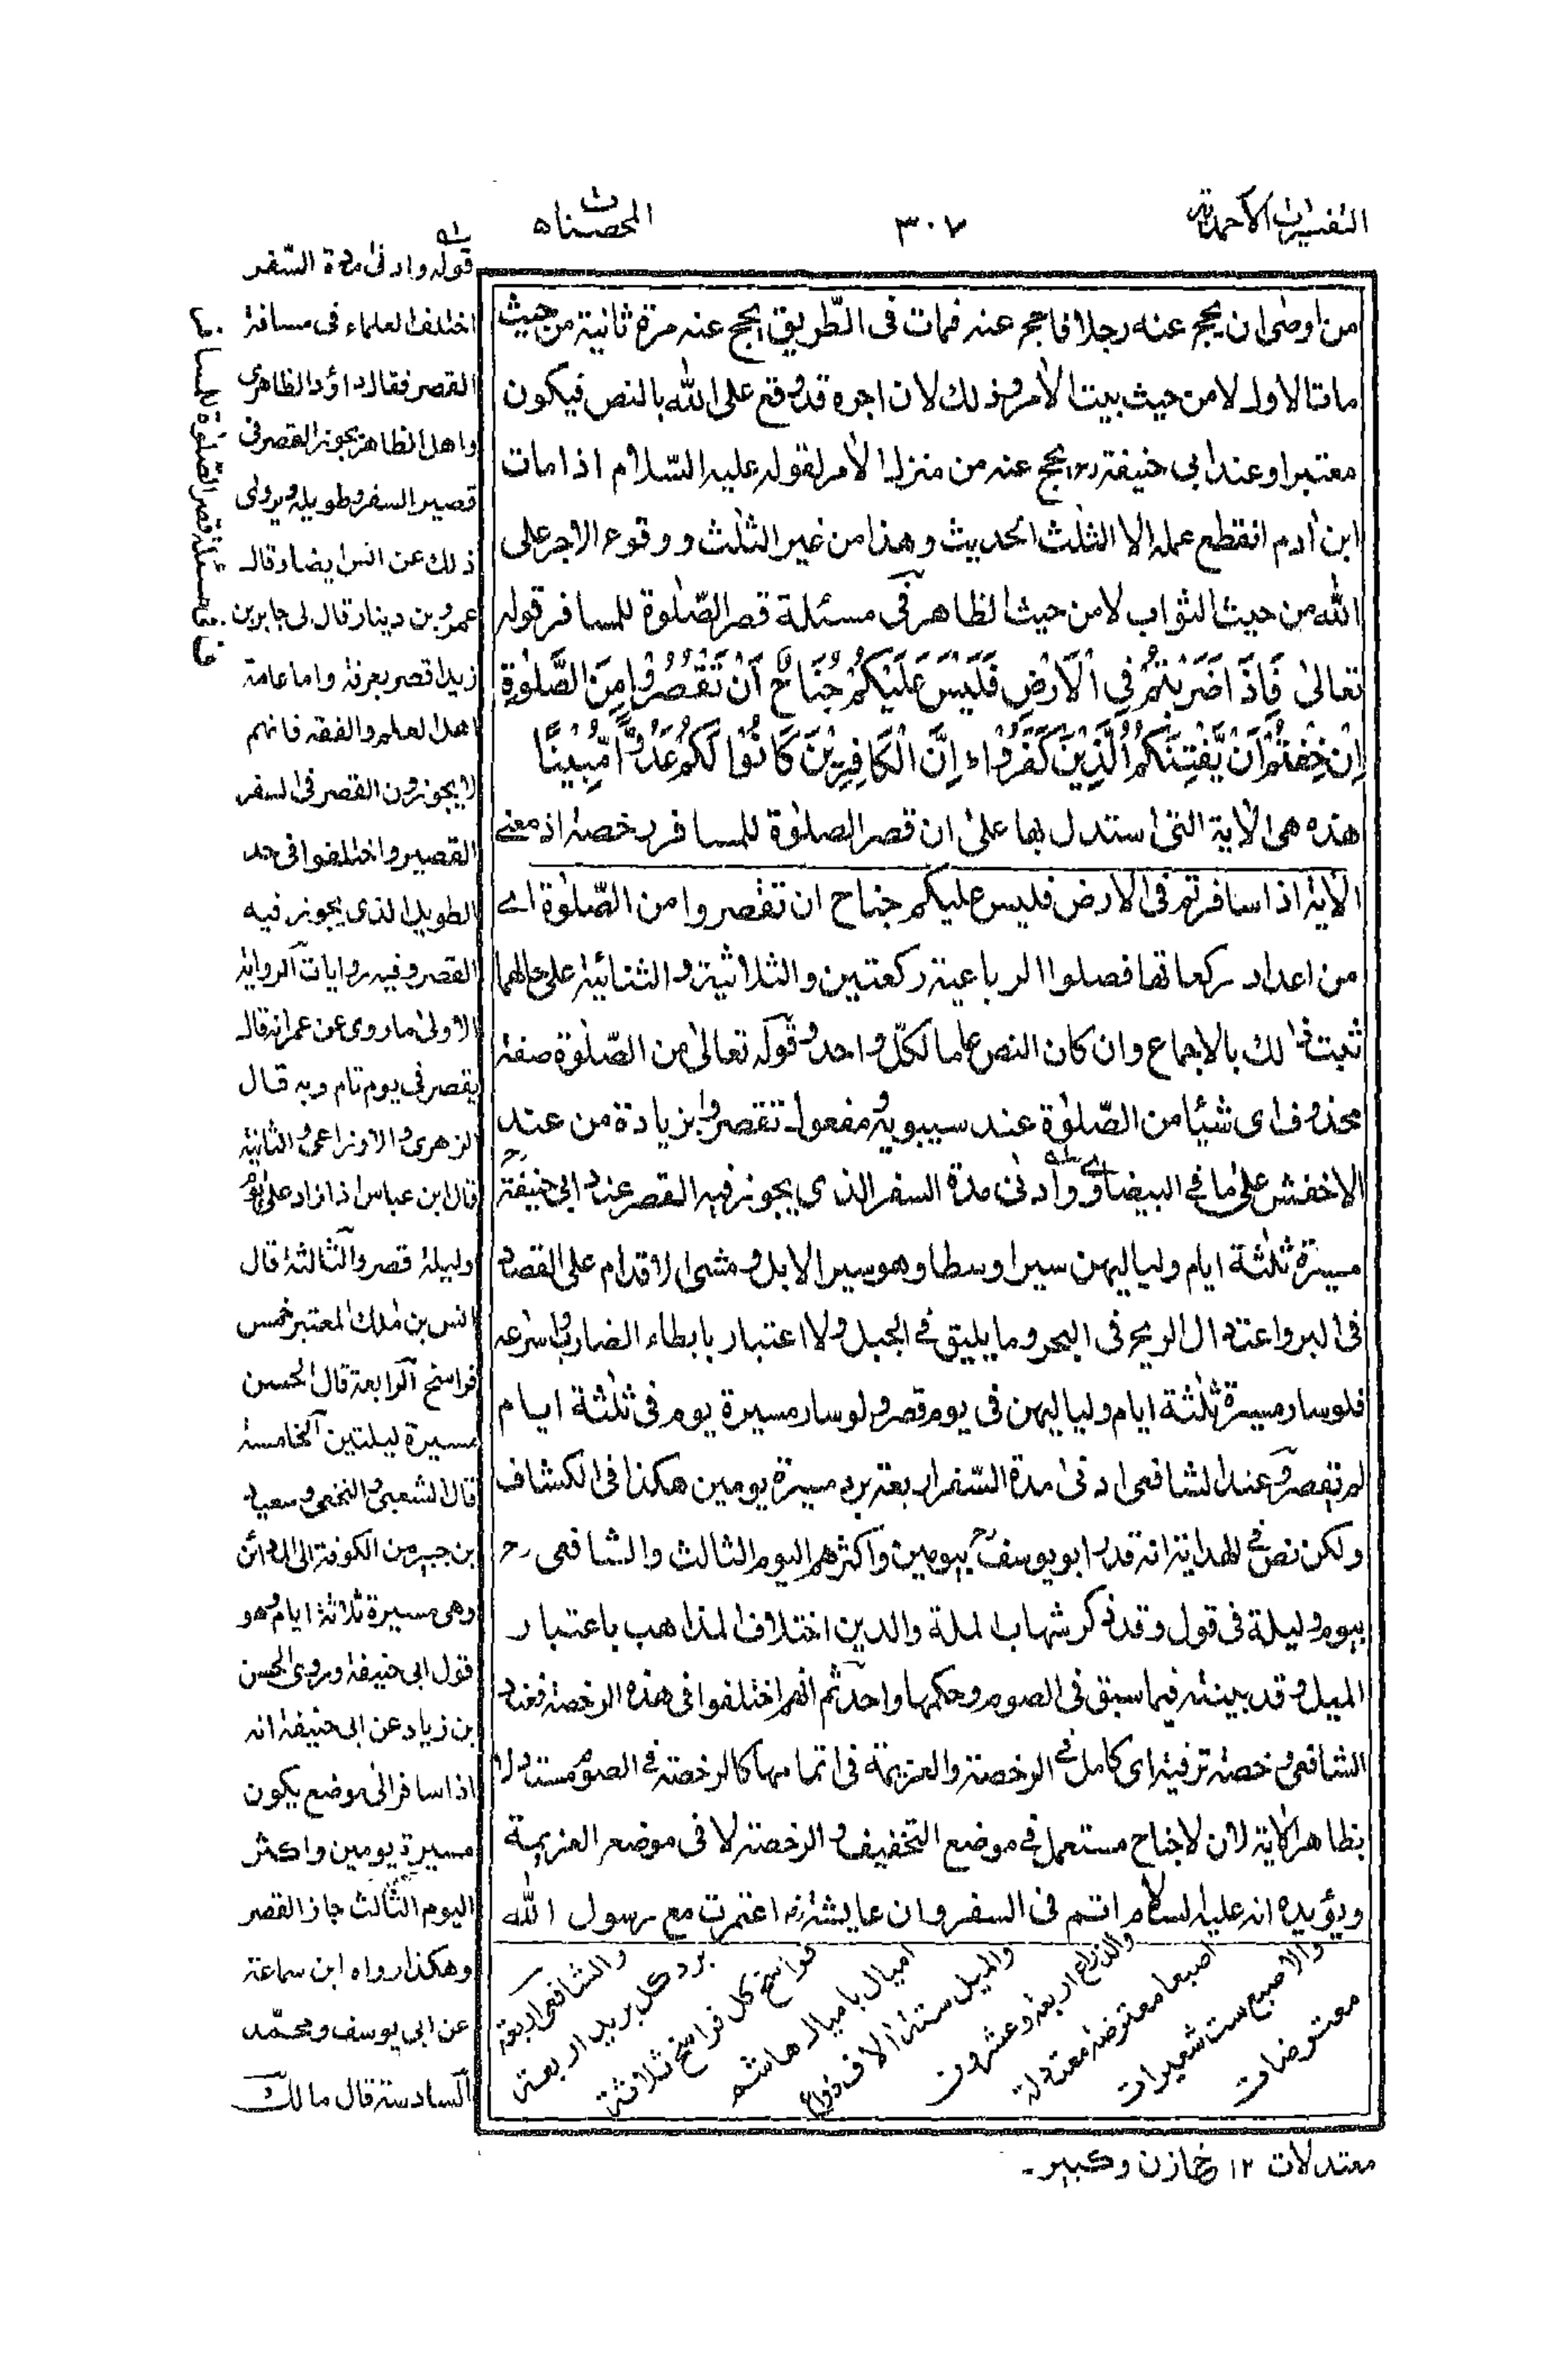 التفسيرات الأحمدية
٣٠٧
المحصنات ٥
من اوصى ان يحج عنه رجلا فاحج عنه فمات فى الطّريق يحج عنه مرة ثانية من حيث
مات الاول لا من حيث بيت الأمر وذلك لان اجره قد وقع على الله بالنص فيكون
معتبرا وعند ابى حنيفة رح يحج عنه من منزل الأمر لقوله عليه السّلام اذا مات
ابن أدم انقطع عمله الا الثلث الحديث وهذا من غير الثلث ووقوع الاجر على
الله من حيث الثواب لا من حيث الظاهر فى مسئلة قصر الصّلوة للمسافر قوله
تعالىٰ فَاِذَا ضَرَبْتُمْ فِى الْاَرْضِ فَلَيْسَ عَلَيْكُمْ جُنَاحٌ اَنْ تَقْصُرُوْا مِنَ الصَّلٰوةِ
اِنْ خِفْتُمْ اَنْ يَّفْتِنَكُمُ الَّذِيْنَ كَفَرُوْا ۤ اِنَّ الْكَافِرِيْنَ كَانُوْا لَكُمْ عَدُوًّا مُّبِيْنًا
هذه هى الأية التى استدل بها على ان قصر الصلوٰة للمسافر رخصة اذ معنے
الأية اذا سافرتم فى الارض فليس عليكم جناح ان تقصروا من الصّلوٰة اے
من اعداد ركعاتها فصلوا الرباعية ركعتين والثلاثية والثنائية على حالهما
ثبت ذلك بالاجماع وان كان النص عاما لكل واحد وقوله تعالىٰ من الصّلوة صفة
محذوف اى شيئا من الصّلوٰة عند سيبويه ومفعول تقصروا بزيادة من عند
الاخفش على ما فے البيضاوے وادنى مدة السفر الذى يجوز فيه القصر عند ابى حنيفة رح
مسيرة ثلثة ايام ولياليهن سيرا وسطا وهو سير الابل ومشى الاقدام على القصد
فى البر واعتدال الريح فى البحر وما يليق فے الجبل ولا اعتبار بابطاء الضارب واسرعه
فلو سار مسيرة ثلثة ايام ولياليهن فى يوم قصر ولو سار مسيرة يوم فى ثلثة ايام
لم يقصر وعند الشافعى ادنى مدة السّفر اربعة برد مسيرة يومين هكذا فى الكشاف
ولكن نص فے الهداية انه قدر ابو يوسف رح بيومين واكثرهم اليوم الثالث والشافعى رح
بيوم وليلة فى قول وقد ذكر شهاب الملة والدين اختلاف المذاهب باعتبار
الميل وقد بينته فيما سبق فى الصوم وحكمها واحد ثم انهم اختلفوا فى هذه الرخصة فعند
الشافعى رخصة ترفيه اى كامل فے الرخصة والعزيمة فى اتمامها كالرخصة فے الصوم مستدلا
بظاهر الاية لان لا جناح مستعمل فے موضع التخفيف والرخصة لا فى موضع العزيمة
ويؤيده انه عليه السلام اتم فى السفر وان عايشة رض اعتمرت مع رسول الله
قوله وادنى مدة السّفر
اختلف العلماء فى مسافة
القصر فقال داؤد الظاهرى
واهل الظاهر يجوز القصر فى
قصير السفر وطويله ويروى
ذلك عن انس ايضا وقال
عمرو بن دينار قال لى جابر بن
زيد اقصر بعرفة واما عامة
اهل العلم والفقه فانهم
لا يجوزون القصر فى السفر
القصير واختلفوا فى حد
الطويل الذى يجوز فيه
القصر وفيه روايات الرواية
الاولى ما روى عن عمر انه قال
يقصر فى يوم تام وبه قال
الزهرى والاوزاعى والثانية
قال ابن عباس اذا زاد على يوم
وليلة قصر والثالثة قال
انس بن مٰلك المعتبر خمس
فراسخ الرابعة قال الحسن
مسيرة ليلتين الخامسة
قال الشعبى والنخعى وسعيد
بن جبير من الكوفة الى المدائن
وهى مسيرة ثلاثة ايام وهو
قول ابى حنيفة وروى الحسن
بن زياد عن ابى حنيفة انه
اذا سافر الى موضع يكون
مسيرة يومين واكثر
اليوم الثالث جاز القصر
وهكذا رواه ابن سماعة
عن ابى يوسف ومحمّد
السادسة قال مالك
والشافعى اربعة
برد كل بريد اربعة
فراسخ كل فراسخ ثلاثة
اميال باميال هاشم
والميل ستة الاف ذراع
والذراع اربعة وعشرون
اصبعا معترضة معتدلة
والاصبع ست شعيرات
معترضات
معتدلات ١٢ خازن وكبير۔
مسئلة قصر الصّلوة للمسافر